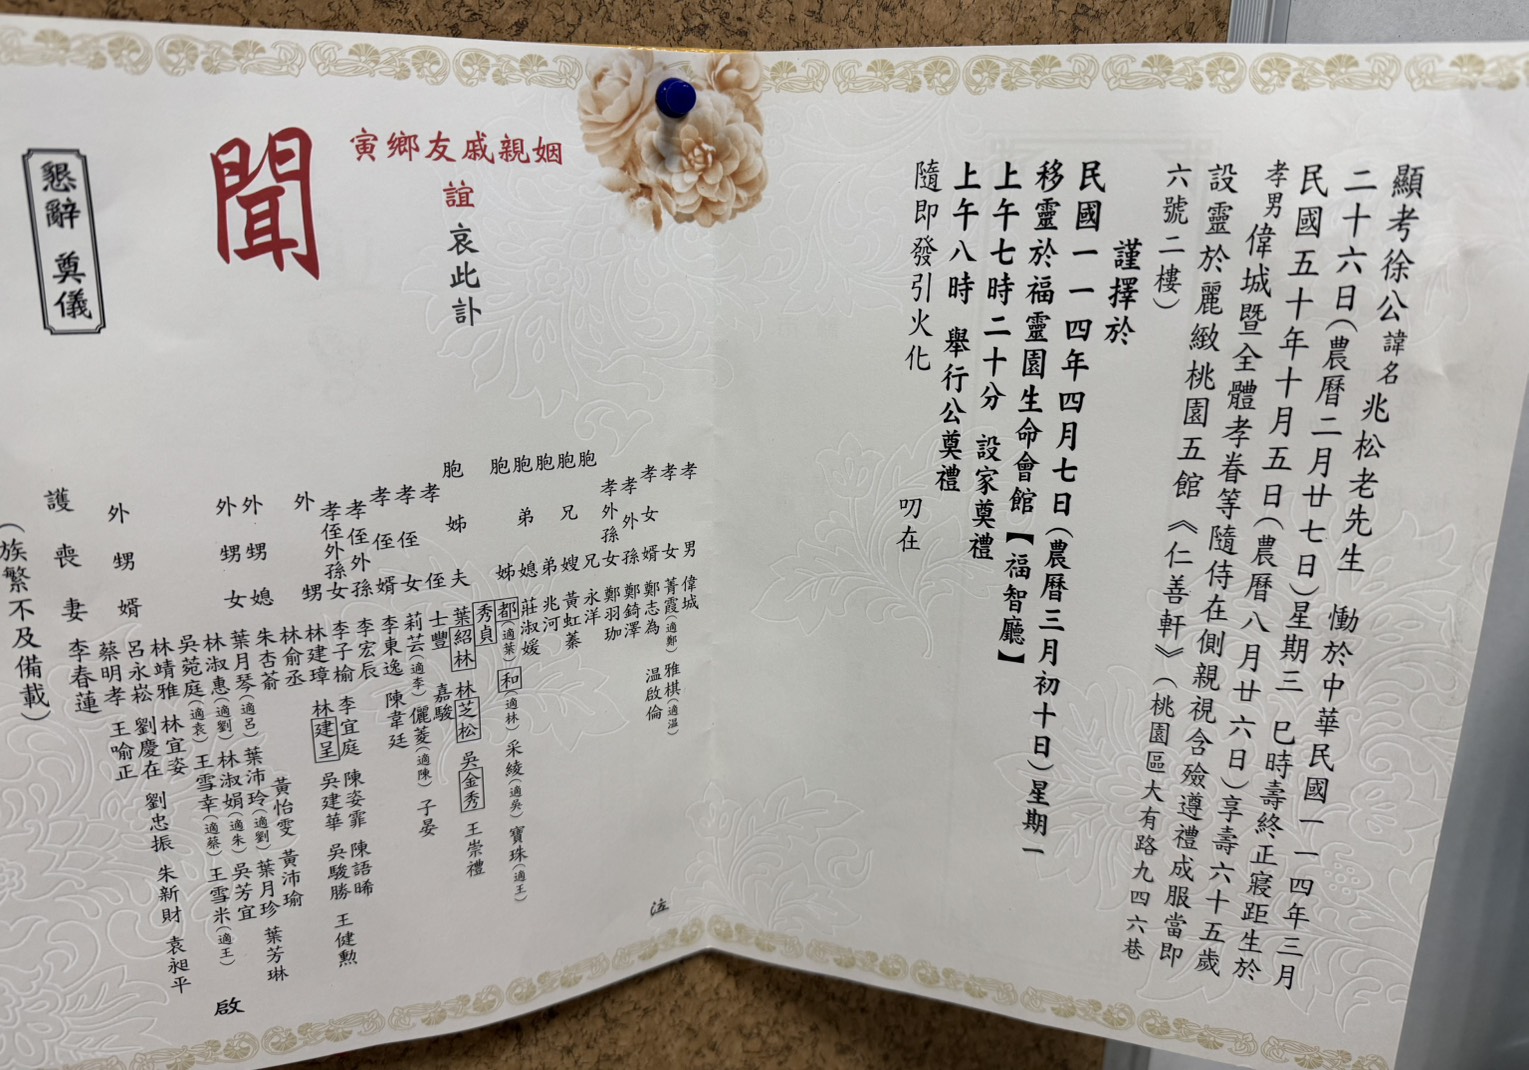 顯考徐公諱名兆松老先生 慟於中華民國一一四年三月
二十六日(農曆二月廿七日)星期三 巳時壽終正寢距生於
民國五十年十月五日(農曆八月廿六日)享壽六十五歲
孝男偉城暨全體孝眷等隨侍在側親視含殮遵禮成服當即
設靈於麗緻桃園五館《仁善軒》(桃園區大有路九四六巷
六號二樓)
謹擇於
民國一一四年四月七日(農曆三月初十日)星期一
移靈於福靈園生命會館【福智廳】
上午七時二十分 設家奠禮
上午八時 舉行公奠禮
隨即發引火化 叨在
姻親戚友鄉寅
誼
哀此訃
聞
懇辭 奠儀
孝男 偉城
孝女 菁霞(適鄭) 雅棋(適溫)
孝女婿 鄭志為 溫啟倫
孝外孫 鄭錡澤
孝外孫女 鄭羽珈
胞兄 永洋
胞兄嫂 黃虹蓁
胞弟 兆河
胞弟媳 莊淑媛
胞姊 都(適葉) 和(適林) 采綾(適吳) 寶珠(適王)
秀貞
胞姊夫 葉紹林 林芝松 吳金秀 王崇禮
孝侄 士豐 嘉駿
孝侄女 莉芸(適李) 儷菱(適陳) 子晏
孝侄婿 李東逸 陳韋廷
孝侄外孫 李宏辰
孝侄外孫女 李子榆 李宜庭 陳姿霏 陳語晞
外甥 林建璋 林建呈 吳建華 吳駿勝 王健勳
林俞丞
外甥媳 朱杏葥 黃怡雯 黃沛瑜
外甥女 葉月琴(適呂) 葉沛玲(適劉) 葉月珍 葉芳琳
林淑惠(適劉) 林淑娟(適朱) 吳芳宜
吳菀庭(適袁) 王雪幸(適蔡) 王雪米(適王)
林靖雅 林宜姿
外甥婿 呂永崧 劉慶在 劉忠振 朱新財 袁昶平
蔡明孝 王喻正
護喪妻 李春蓮
(族繁不及備載)
泣
啟